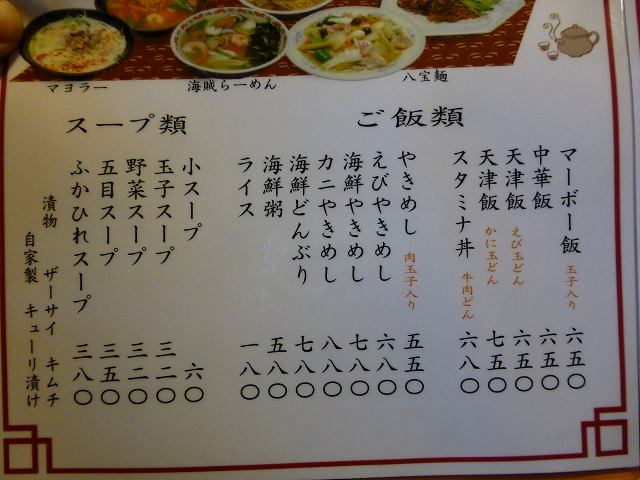 マヨラー
海賊らーめん
八宝麺
ご飯類
マーボー飯 玉子入り 六五〇
中華飯 六五〇
天津飯 えび玉どん 六五〇
天津飯 かに玉どん 七五〇
スタミナ丼 牛肉どん 六八〇
やきめし 肉玉子入り 五五〇
えびやきめし 六八〇
海鮮やきめし 七八〇
カニやきめし 八八〇
海鮮どんぶり 七八〇
海鮮粥 五五〇
ライス 一八〇
スープ類
小スープ 六〇
玉子スープ 三二〇
野菜スープ 三二〇
五目スープ 三五〇
ふかひれスープ 三八〇
漬物 ザーサイ キムチ
自家製 キューリ漬け